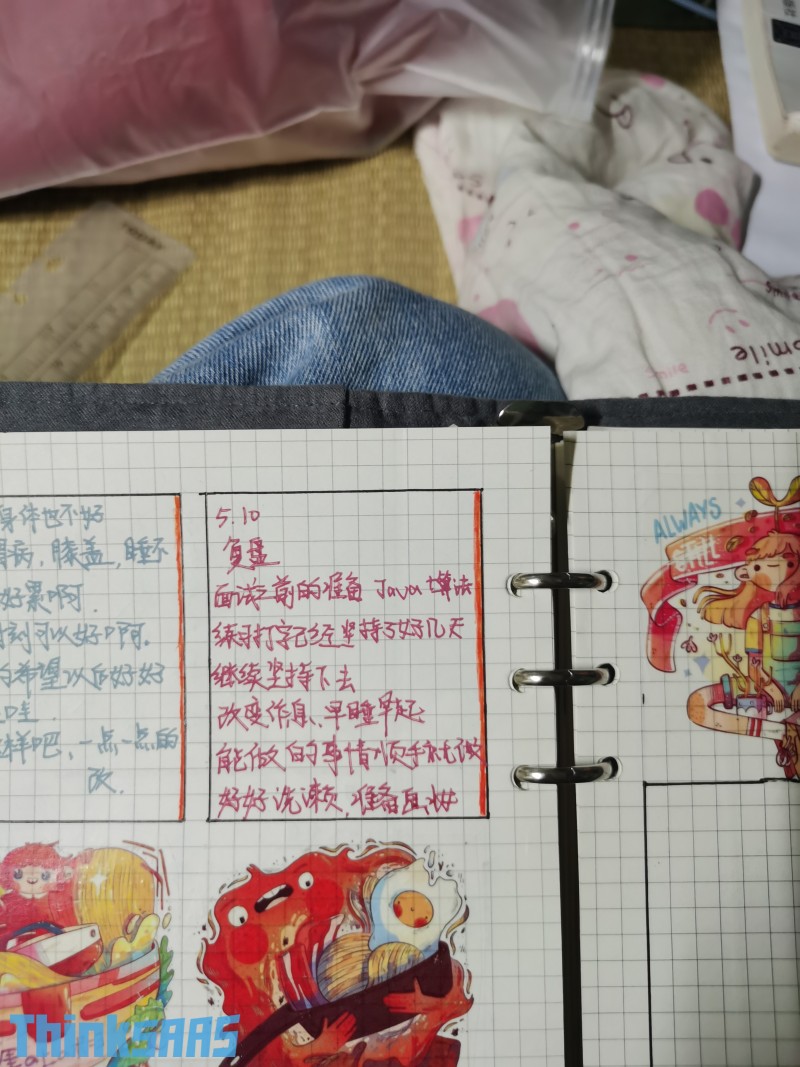 smile
身体也不好
病,膝盖,睡不
好累啊.
可以好啊.
希望以后好好
哇.
样吧,一点一点的
改.
5.10
复盘
面试之前的准备 Java 算法
练习打字已经坚持了好几天
继续坚持下去
改变作息、早睡早起
能做的事情顺手就做
好好洗漱,准备面妆
ALWAYS
ThinkSAAS